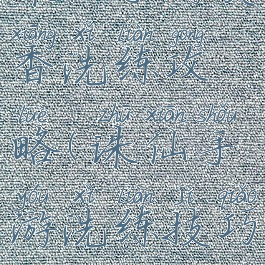 xiāng xǐ liàn gōng
香洗练攻
lüè zhū xiān shǒu
略(诛仙手
yóu xǐ liàn jì qiǎo
游洗练技巧